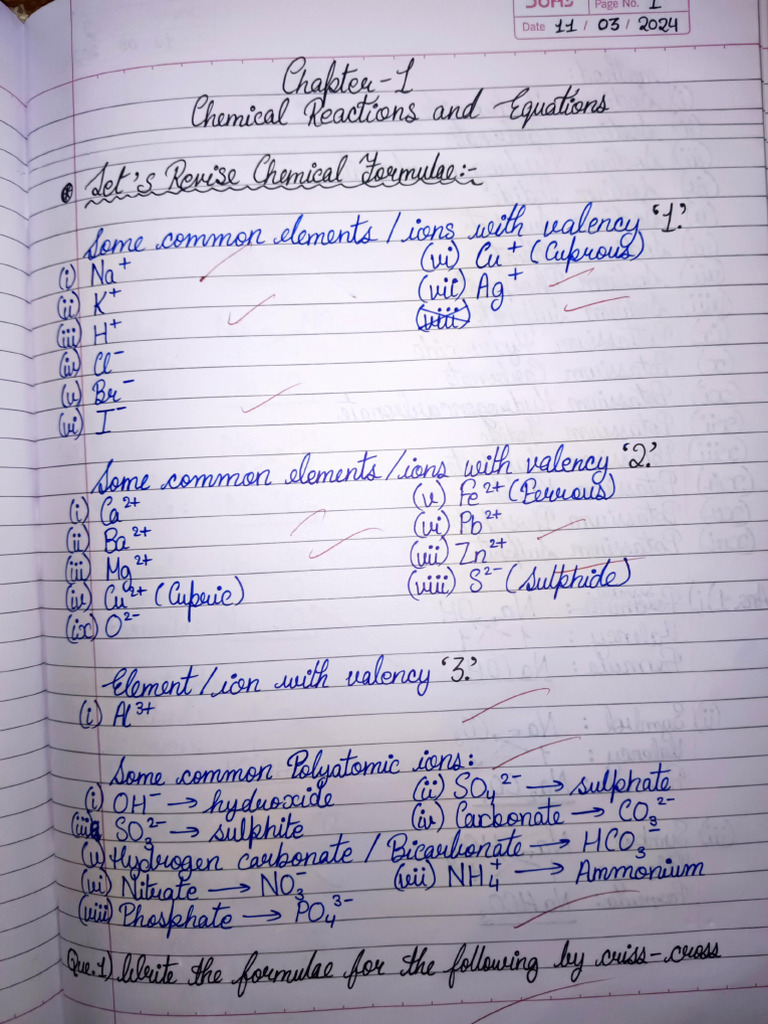 Page No. 1
Date 11 / 03 / 2024
Chapter-1
Chemical Reactions and Equations
Let's Revise Chemical Formulae:-
Some common elements/ions with valency '1.'
(i) Na⁺
(ii) K⁺
(iii) H⁺
(iv) Cl⁻
(v) Br⁻
(vi) I⁻
(vi) Cu⁺ (Cuprous)
(vii) Ag⁺
(viii)
Some common elements/ions with valency '2.'
(i) Ca²⁺
(ii) Ba²⁺
(iii) Mg²⁺
(iv) Cu²⁺ (Cupric)
(ix) O²⁻
(v) Fe²⁺ (Ferrous)
(vi) Pb²⁺
(vii) Zn²⁺
(viii) S²⁻ (sulphide)
Element/ion with valency '3.'
(i) Al³⁺
Some common Polyatomic ions:
(i) OH⁻ → hydroxide (ii) SO₄²⁻ → sulphate
(iii) SO₃²⁻ → sulphite (iv) Carbonate → CO₃²⁻
(v) Hydrogen carbonate / Bicarbonate → HCO₃⁻
(vi) Nitrate → NO₃⁻ (vii) NH₄⁺ → Ammonium
(viii) Phosphate → PO₄³⁻
Que.1) Write the formulae for the following by criss-cross